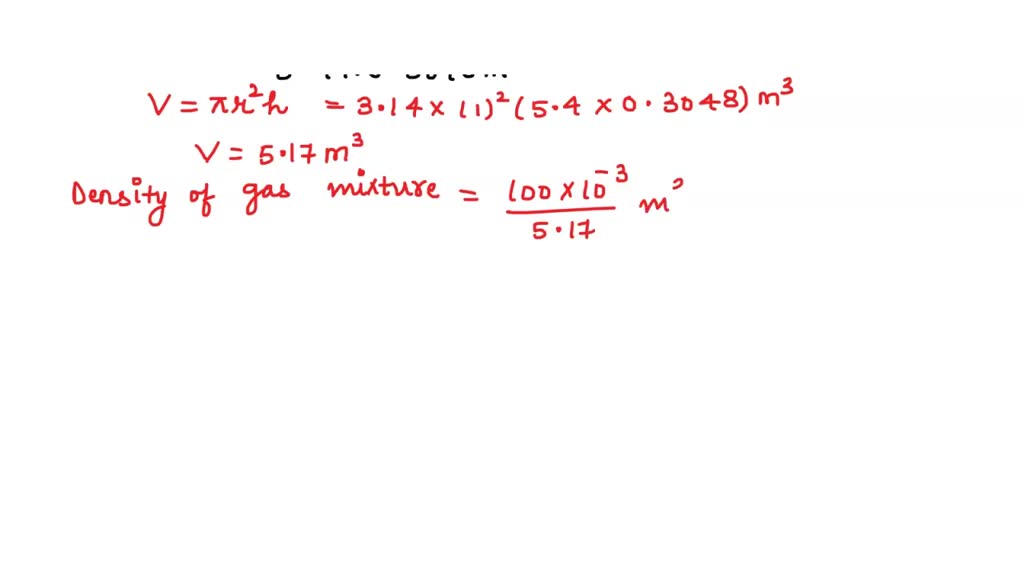 V = πr²h = 3.14 × (1)² (5.4 × 0.3048) m³
V = 5.17 m³
Density of gas mixture = 100 × 10⁻³ / 5.17 m²